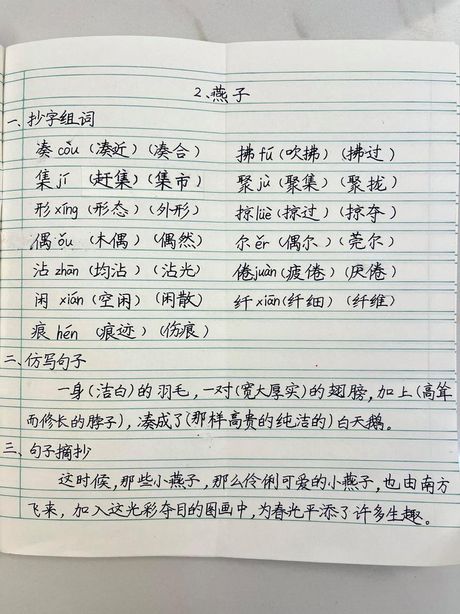 2、燕子
一、抄字组词
凑còu(凑近)(凑合) 拂fú(吹拂)(拂过)
集jí(赶集)(集市) 聚jù(聚集)(聚拢)
形xíng(形态)(外形) 掠lüè(掠过)(掠夺)
偶ǒu(木偶)(偶然) 尔ěr(偶尔)(莞尔)
沾zhān(均沾)(沾光) 倦juàn(疲倦)(厌倦)
闲xián(空闲)(闲散) 纤xiān(纤细)(纤维)
痕hén(痕迹)(伤痕)
二、仿写句子
一身(洁白)的羽毛,一对(宽大厚实)的翅膀,加上(高耸
而修长的脖子),凑成了(那样高贵的纯洁的)白天鹅。
三、句子摘抄
这时候,那些小燕子,那么伶俐可爱的小燕子,也由南方
飞来,加入这光彩夺目的图画中,为春光平添了许多生趣。